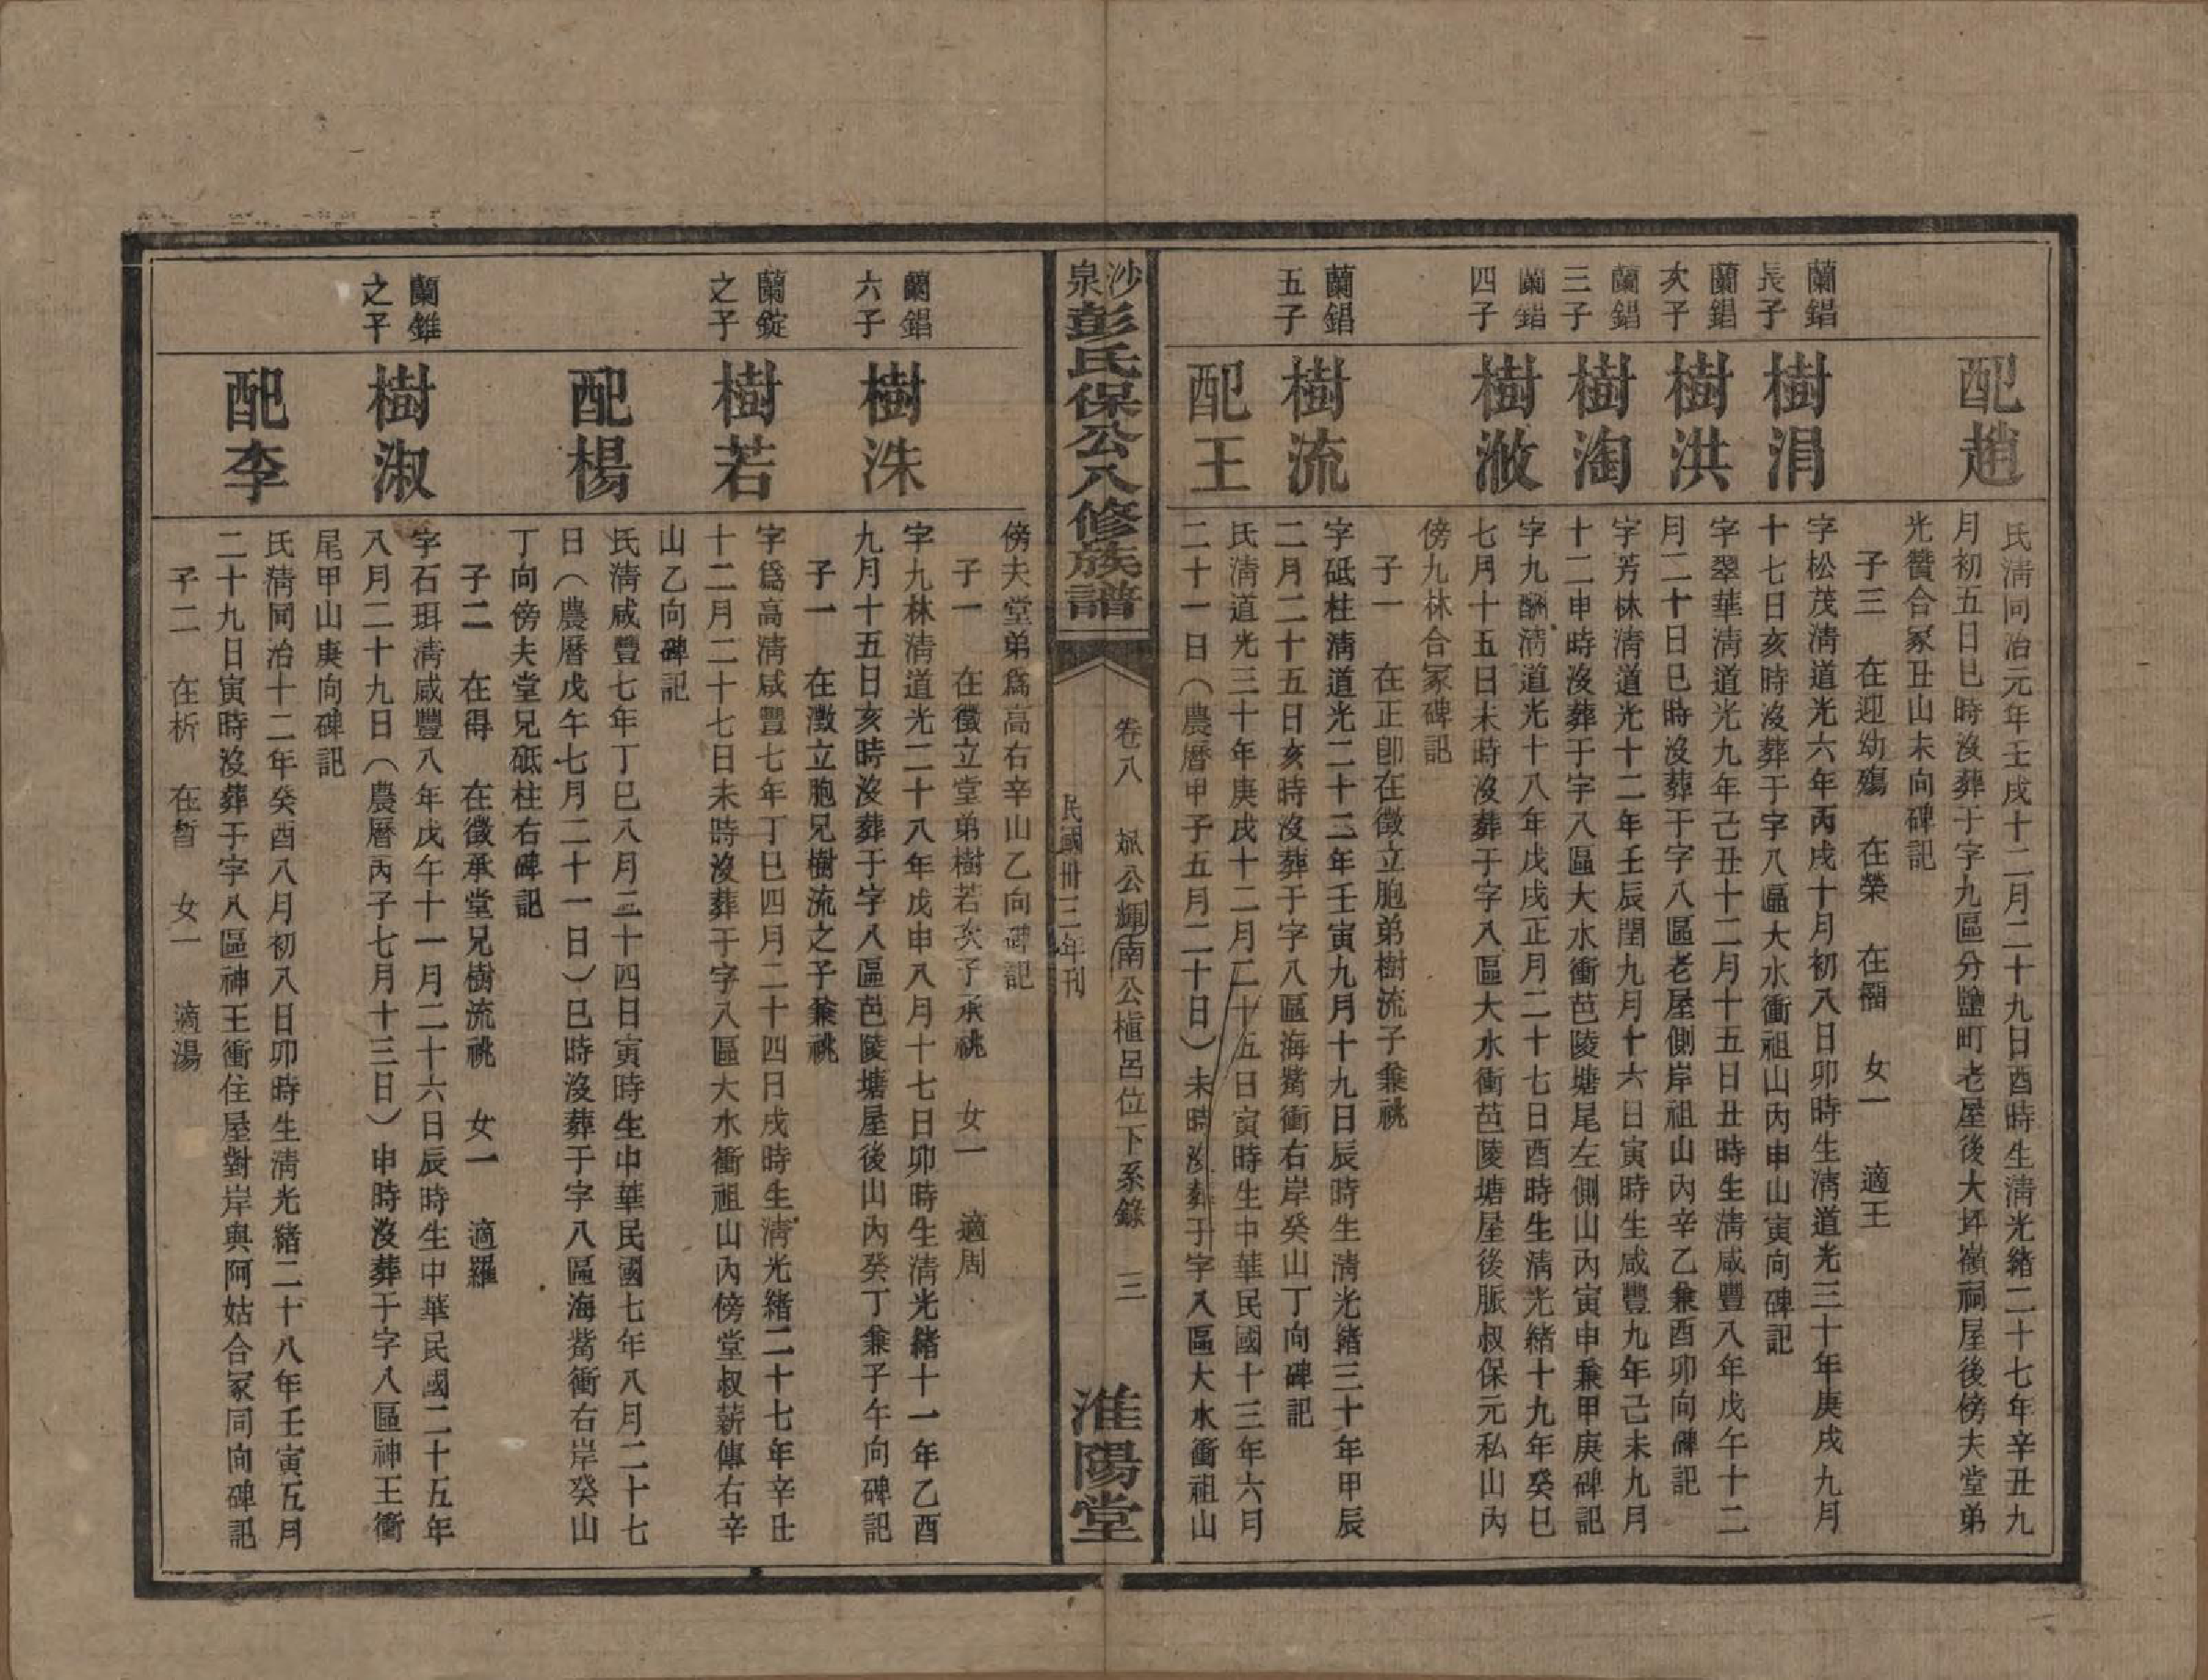 配趙
氏清同治元年壬戌十二月二十九日酉時生清光緒二十七年辛丑九
月初五日巳時沒葬于字九區分鹽町老屋後大坪嶺祠屋後傍夫堂弟
光贊合冢丑山未向碑記
子三　在迎幼殤　在榮　在福　女一　適王
蘭錩
長子
樹涓
字松茂清道光六年丙戌十月初八日卯時生清道光三十年庚戌九月
十七日亥時沒葬于字八區大水衝祖山內申山寅向碑記
蘭錩
次子
樹洪
字翠華清道光九年己丑十二月十五日丑時生清咸豐八年戊午十二
月二十日巳時沒葬于字八區老屋側岸祖山內辛乙兼酉卯向碑記
蘭錩
三子
樹淘
字芳林清道光十二年壬辰閏九月十六日寅時生咸豐九年己未九月
十二申時沒葬于字八區大水衝芭陵塘尾左側山內寅申兼甲庚碑記
蘭錩
四子
樹滧
字九酬清道光十八年戊戌正月二十七日酉時生清光緒十九年癸巳
七月十五日未時沒葬于字八區大水衝芭陵塘屋後脈叔保元私山內
傍九林合冢碑記
子一　在正卽在徵立胞弟樹流子兼祧
蘭錩
五子
樹流
字砥柱清道光二十二年壬寅九月十九日辰時生清光緒三十年甲辰
二月二十五日亥時沒葬于字八區海觜衝右岸癸山丁向碑記
配王
氏清道光三十年庚戌十二月二十五日寅時生中華民國十三年六月
二十一日（農曆甲子五月二十日）未時沒葬于字八區大水衝祖山
沙泉彭氏保公八修族譜
卷八　㞳公輝南公植呂位下系錄　三
民國卅三年刊
淮陽堂
傍夫堂弟爲高右辛山乙向碑記
子一　在徵立堂弟樹若次子承祧　女一　適周
蘭錩
六子
樹洙
字九林清道光二十八年戊申八月十七日卯時生清光緒十一年乙酉
九月十五日亥時沒葬于字八區芭陵塘屋後山內癸丁兼子午向碑記
子一　在澂立胞兄樹流之子兼祧
蘭錠
之子
樹若
字爲高清咸豐七年丁巳四月二十四日戌時生清光緒二十七年辛丑
十二月二十七日未時沒葬于字八區大水衝祖山內傍堂叔薪傳右辛
山乙向碑記
配楊
氏清咸豐七年丁巳八月二十四日寅時生中華民國七年八月二十七
日（農曆戊午七月二十一日）巳時沒葬于字八區海觜衝右岸癸山
丁向傍夫堂兄砥柱右碑記
子二　在得　在徵承堂兄樹流祧　女一　適羅
蘭錐
之子
樹淑
字石珥清咸豐八年戊午十一月二十六日辰時生中華民國二十五年
八月二十九日（農曆丙子七月十三日）申時沒葬于字八區神王衝
尾甲山庚向碑記
配李
氏清同治十二年癸酉八月初八日卯時生清光緒二十八年壬寅五月
二十九日寅時沒葬于字八區神王衝住屋對岸與阿姑合冢同向碑記
子二　在析　在暂　女一　適湯